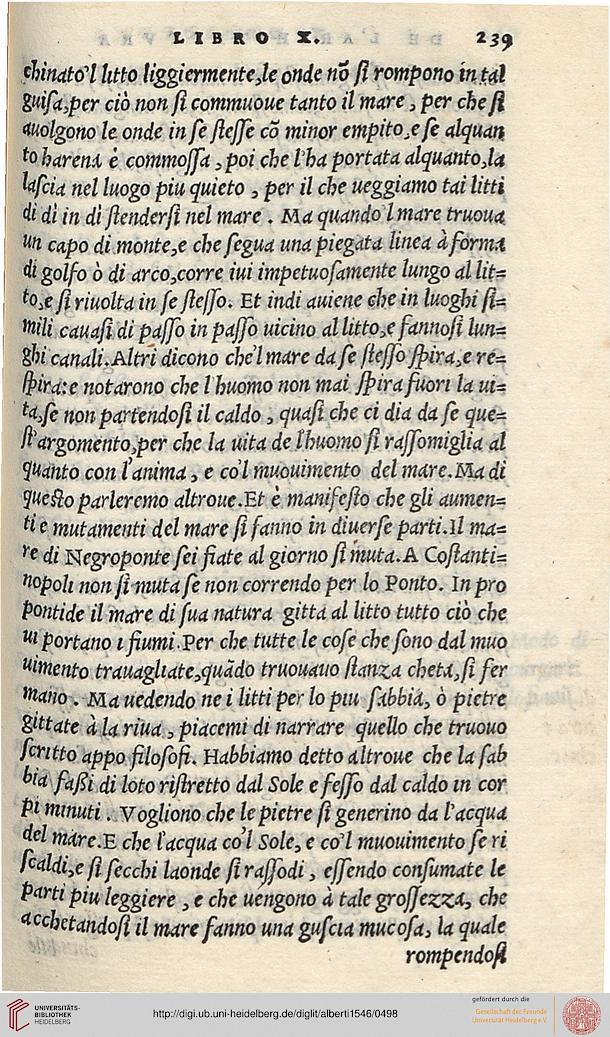 LIBRO X. 239
chinato'l litto liggiermente,le onde nõ ſi rompono in tal
guiſa,per ciò non ſi commuoue tanto il mare , per che ſi
auolgono le onde in ſe ſteſſe cõ minor empito,e ſe alquan
to harena è commoſſa , poi che l'ha portata alquanto,la
laſcia nel luogo piu quieto , per il che ueggiamo tai litti
di dì in dì ſtenderſi nel mare . Ma quando'l mare truoua
un capo di monte,e che ſegua una piegata linea à forma
di golfo ò di arco,corre iui impetuoſamente lungo al lit=
to,e ſi riuolta in ſe ſteſſo. Et indi auiene che in luoghi ſi=
mili cauaſi di paſſo in paſſo uicino al litto,e fannoſi lun=
ghi canali.Altri dicono che'l mare da ſe ſteſſo ſpira,e re=
ſpira:e notarono che l'huomo non mai ſpira fuori la ui=
ta,ſe non partendoſi il caldo , quaſi che ci dia da ſe que=
ſt'argomento,per che la uita de l'huomo ſi raſſomiglia al
quanto con l'anima , e co'l muouimento del mare.Ma di
queſto parleremo altroue.Et è manifeſto che gli aumen=
ti e mutamenti del mare ſi fanno in diuerſe parti.Il ma=
re di Negroponte ſei fiate al giorno ſi muta.A Coſtanti=
nopoli non ſi muta ſe non correndo per lo Ponto. In pro
pontide il mare di ſua natura gitta al litto tutto ciò che
ui portano i fiumi.Per che tutte le coſe che ſono dal muo
uimento trauagliate,quãdo truouauo ſtanza cheta,ſi fer
mano . Ma uedendo ne i litti per lo piu ſabbia, ò pietre
gittate à la riua , piacemi di narrare quello che truouo
ſcritto appo filoſofi. Habbiamo detto altroue che la ſab
bia faßi di loto riſtretto dal Sole e feſſo dal caldo in cor
pi minuti . Vogliono che le pietre ſi generino da l'acqua
del mare.E che l'acqua co'l Sole, e co'l muouimento ſe ri
ſcaldi,e ſi ſecchi laonde ſi raſſodi , eſſendo conſumate le
parti piu leggiere , e che uengono à tale groſſezza, che
acchetandoſi il mare fanno una guſcia mucoſa, la quale
rompendoſi
UNIVERSITÄTS-
BIBLIOTHEK
HEIDELBERG
http://digi.ub.uni-heidelberg.de/diglit/alberti1546/0498
gefördert durch die
Gesellschaft der Freunde
Universität Heidelberg e.V.